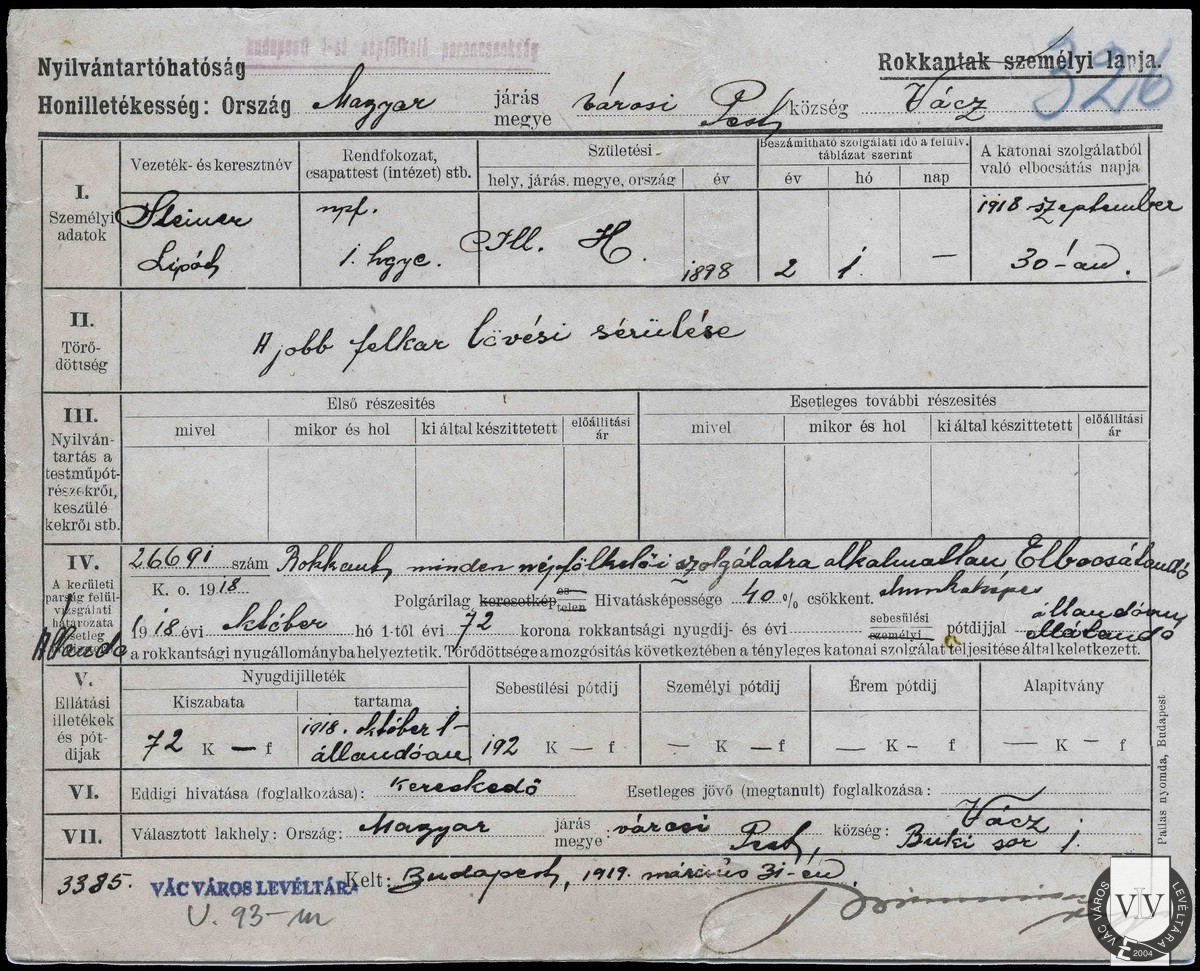 Budapesti 1-ső népfölkelő parancsnokság
Nyilvántartóhatóság
Rokkantak személyi lapja.
326
Honilletékesség: Ország Magyar járás megye városi Pest község Vácz
I. Személyi adatok
Vezeték- és keresztnév
Rendfokozat, csapattest (intézet) stb.
Születési
hely, járás, megye, ország
év
Beszámítható szolgálati idő a felülv. táblázat szerint
év hó nap
A katonai szolgálatból való elbocsátás napja
Steiner Lipót
npf. 1. hgye.
1898
2 1 —
1918 szeptember 30-án.
II. Törődöttség
A jobb felkar lövési sérülése
III. Nyilvántartás a testműpótrészekről, keszülékekről stb.
Első részesités
mivel mikor és hol ki által készittetett előállitási ár
Esetleges további részesités
mivel mikor és hol ki által készittetett előállitási ár
IV. A kerületi parság felülvizsgálati határozata esetleg
26691 szám Rokkant, minden népfölkelői szolgálatra alkalmatlan Elbocsátandó
K. o. 1918
Polgárilag keresetkép es telen Hivatásképessége 40 % csökkent. Munkaképes
1918 évi október hó 1-től évi 72 korona rokkantsági nyugdij- és évi sebesülési személyi pótdijjal állandóan
a rokkantsági nyugállományba helyeztetik. Törődöttsége a mozgósitás következtében a tényleges katonai szolgálat teljesitése által keletkezett.
V. Ellátási illetékek és pótdijak
Nyugdijilleték
Kiszabata tartama
Sebesülési pótdij
Személyi pótdij
Érem pótdij
Alapitvány
72 K — f
1918. október 1- állandóan
192 K — f
— K — f
— K — f
— K — f
VI. Eddigi hivatása (foglalkozása): kereskedő
Esetleges jövő (megtanult) foglalkozása:
VII. Választott lakhely: Ország: Magyar járás megye: városi Pest, község: Vácz
Buki sor 1.
3385. VÁC VÁROS LEVÉLTÁRA
Kelt: Budapest, 1919. március 31-én.
V. 93-m
Pallas nyomda, Budapest
VÁC VÁROS LEVÉLTÁRA
VLV
2004